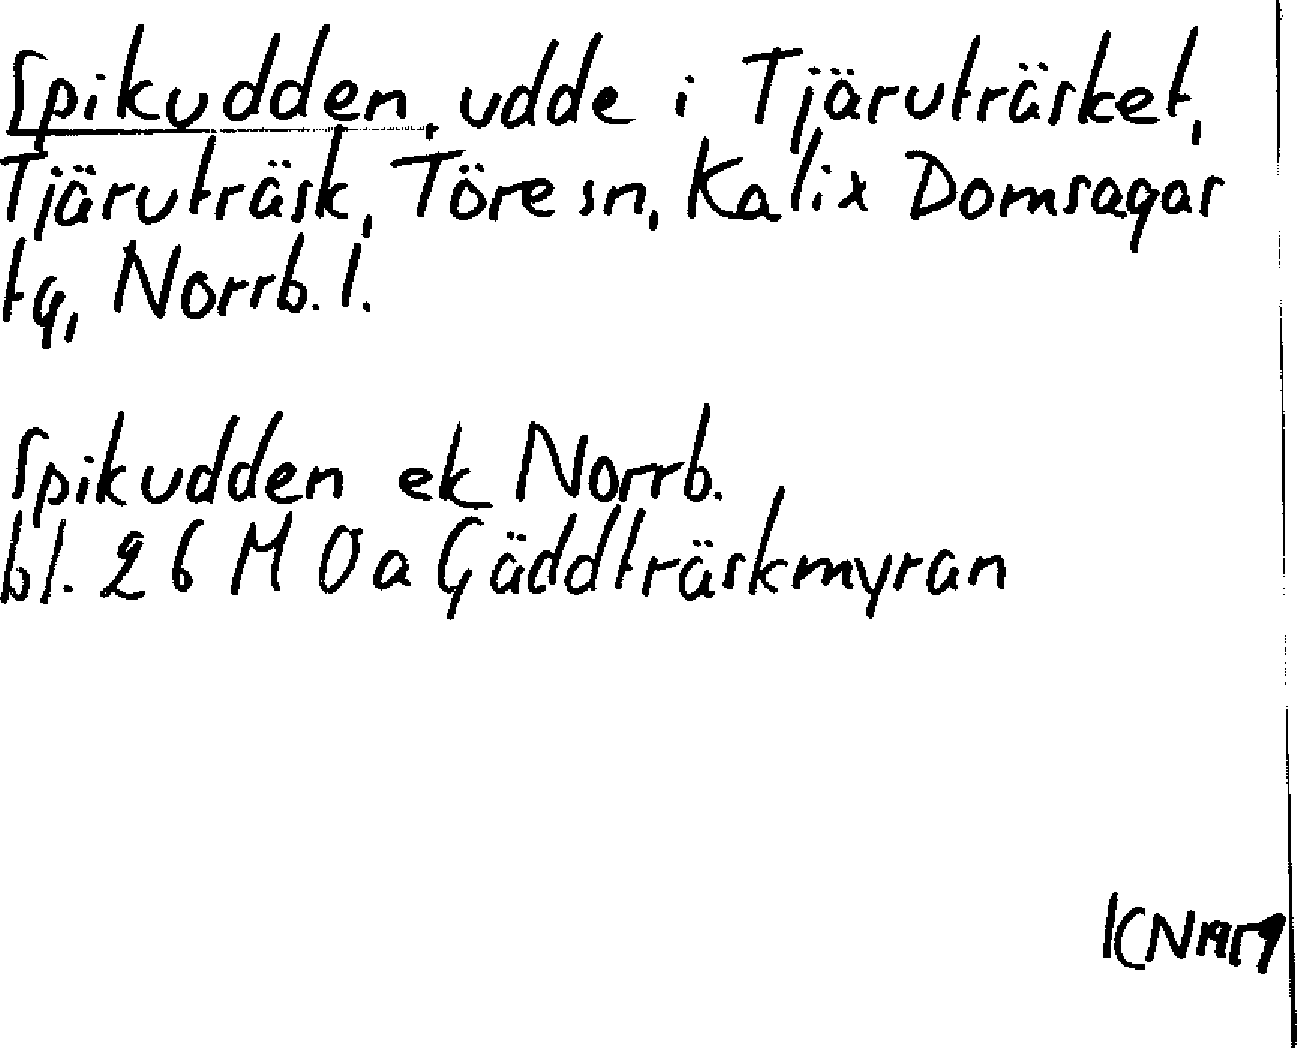 Spikudden, udde i Tjäruträsket,
Tjäruträsk, Töre sn, Kalix Domsagas
tg, Norrb. l.
Spikudden ek Norrb.
bl. 26 M 0 a Gäddträskmyran